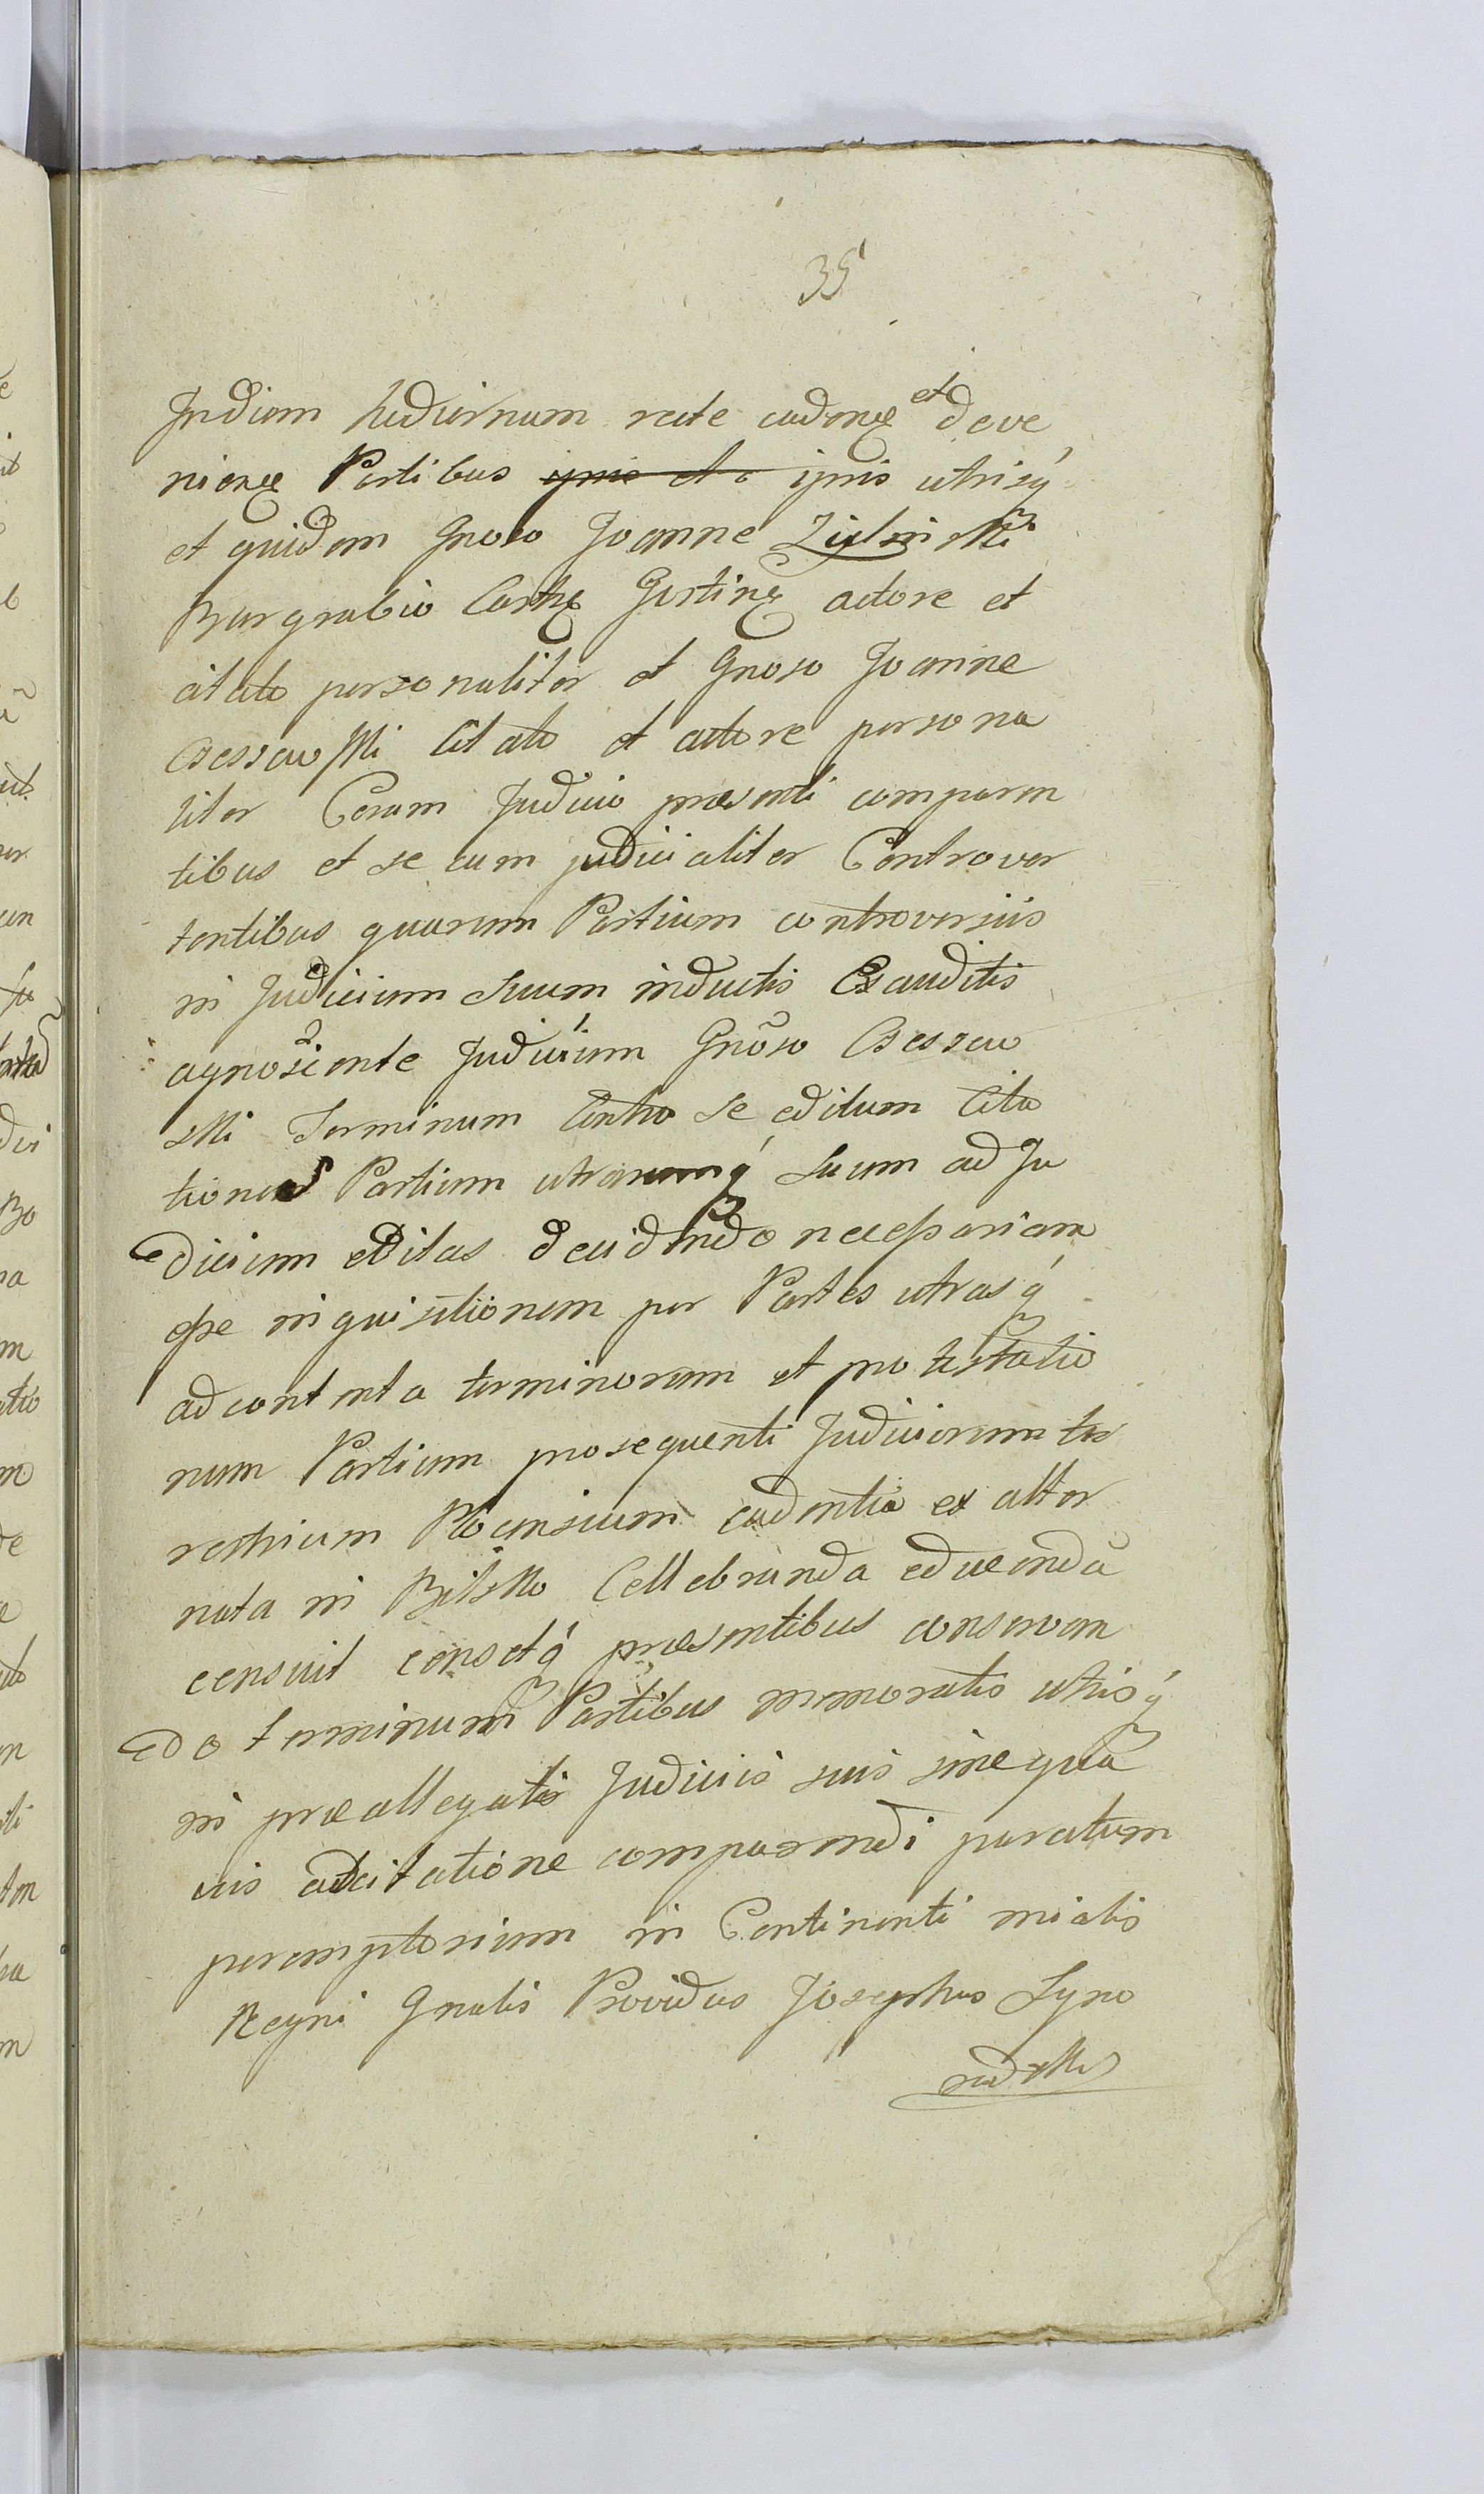 35
In diem hodiernum recte caden et deve
nien Partibus ipsis et a ipsis utrisq
et quidem Gnoso Joanne Zielinski
Burgrabio Castr Gostin actore et
citato personaliter et Gnoso Joanne
citato et actore persona
liter Coram Judicio praesenti comparen
tibus et se cum judicialiter Controver
tentibus quarum Partium controversiis
in Judicium Suum inductis Exauditis
agnoscente Judicium Gnoso
ski Terminum Contra Se editum Cita
tiones Partium utrarumq Suum ad Ju
dicium editas decidendo necessariam
esse inquisitionem per Partes utrasq
ad contenta terminorum et protestatio
num Partium prosequenti Judiciorum ter
restrium Plocensium cadentia ex alter
nata in Bilsko Cellebranda educenda
censuit censetq praesentibus conservan
do terminum Partibus memoratis utrisq
in praeallegatis Judiciis suis sine qua
vis adcitatione comparendi paratum
peremptorium in Continenti mialis
Regni Gnalis Providus Josephus Syro